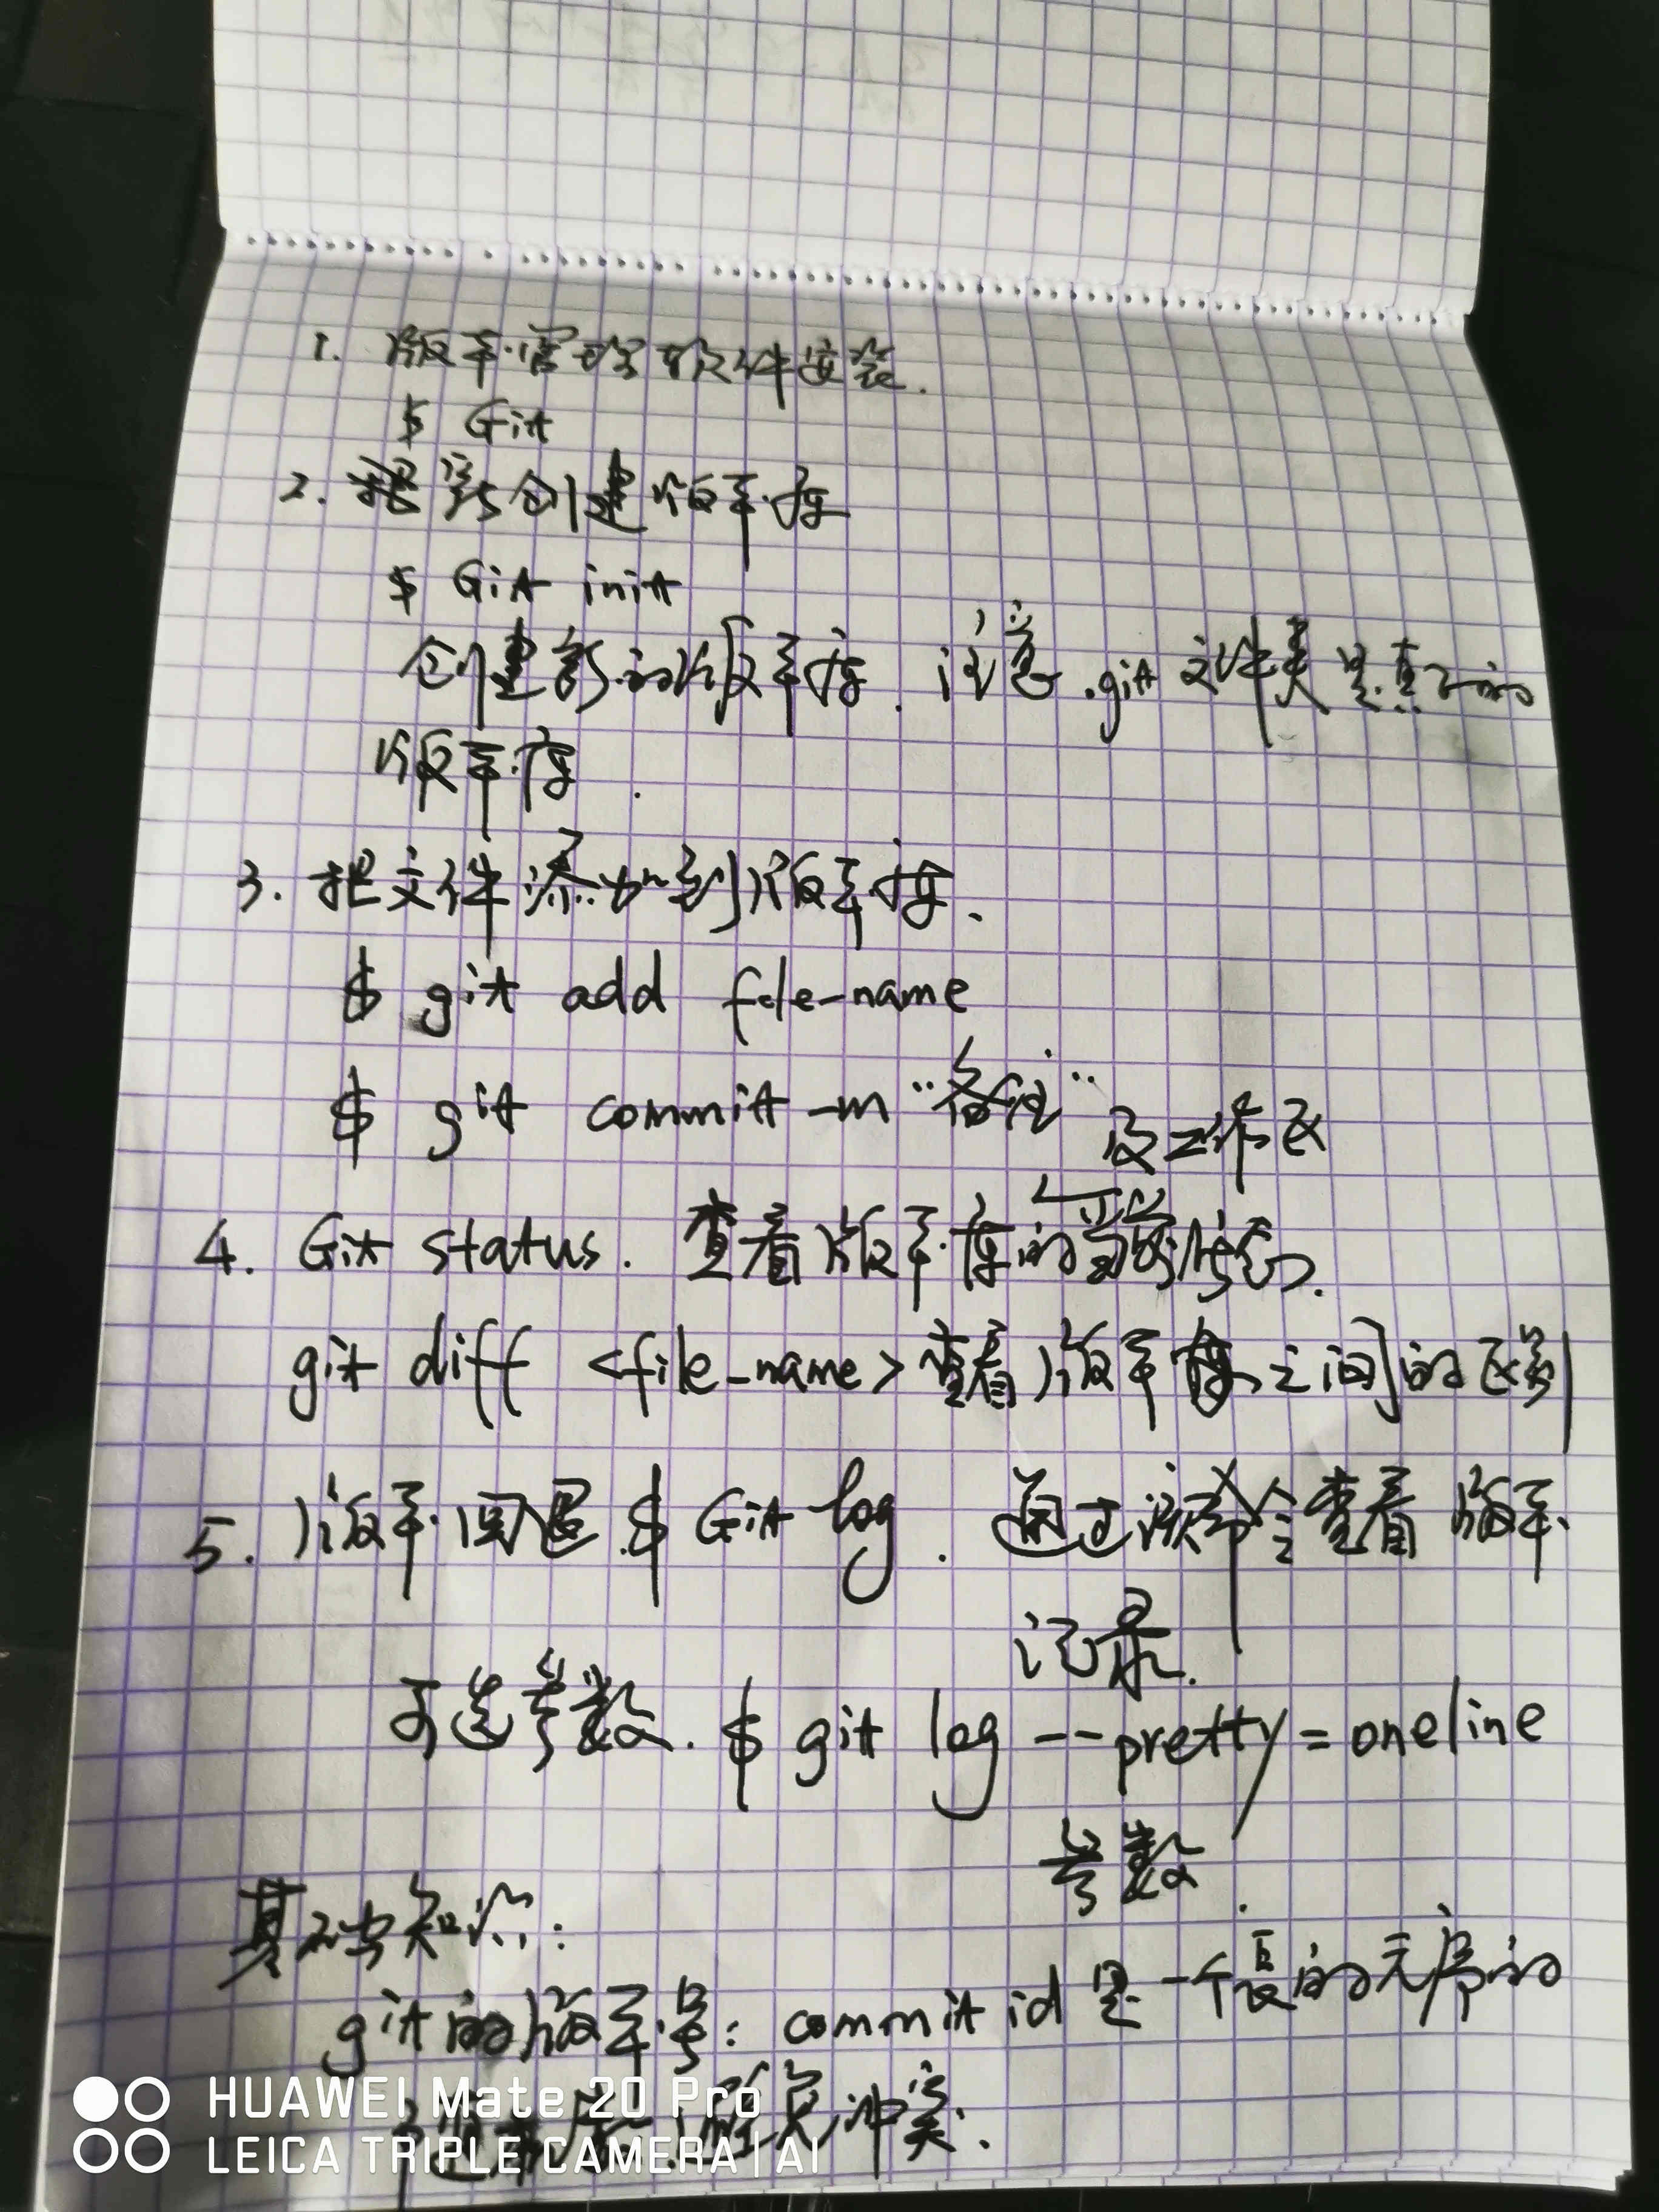 1. 版本管理软件安装.
$ Git
2. 创建版本库
$ Git init
创建新的版本库. 注意 .git 文件夹是真正的
版本库.
3. 把文件添加到版本库.
$ git add file-name
$ git commit -m "备注" 提交修改
4. Git status. 查看版本库的情况.
git diff <file_name> 查看版本库之间的区别
5. 版本回退 $ Git log. 通过该命令查看版本
记录.
可选参数. $ git log --pretty=oneline
参数.
基础知识:
git的版本号: commit id 是一个长的无序的
解决冲突.
HUAWEI Mate 20 Pro
LEICA TRIPLE CAMERA | AI